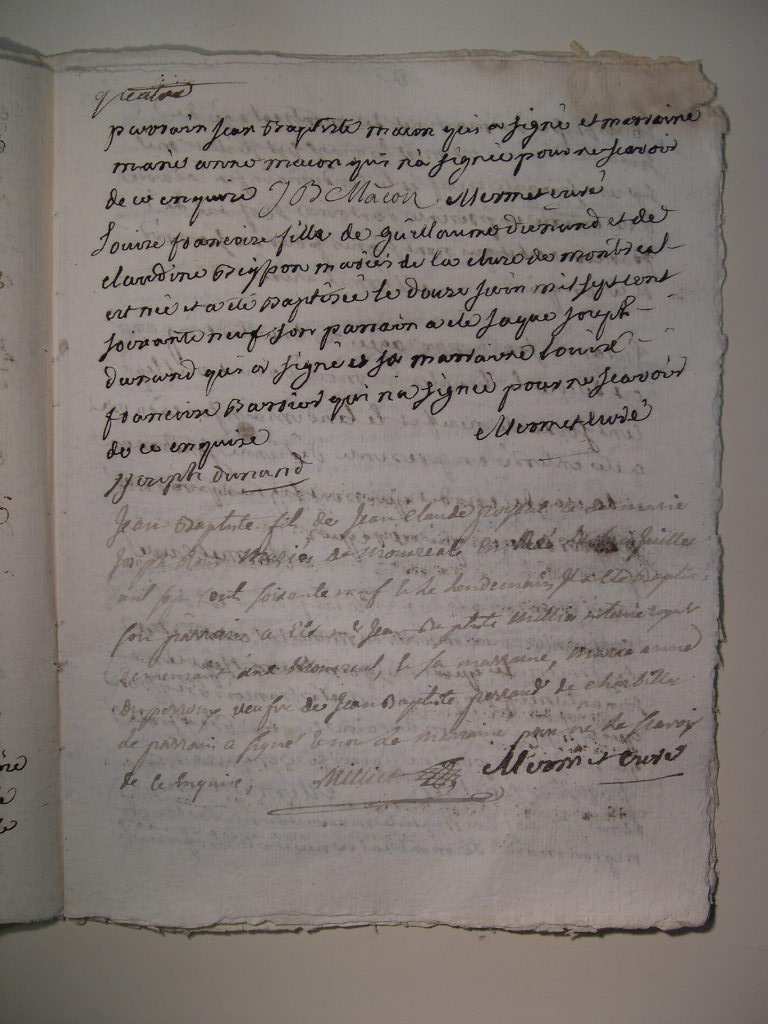 quatre
parrain jean Baptiste macon qui a signé et marraine
marie anne macon qui nà signée pour ne scavoir
de ce enquise J B Mâcon Mermet curé
Louise francoise fille de guillaume dunand et de
claudine mariés de la cluse de montreal
est née et a été Baptisée le douze juin mil sept cent
soixante neuf son parrain a été jaque joseph
dunand qui a signé et sa marraine Louise
francoise Barrier qui n'a signée pour ne scavoir
de ce enquise Mermet curé
JJoseph dunand
Jean Baptiste fils de Jean Claude marie
Mariés de Montreal Juillet
mil sept cent soixante neuf & le lendemain, il a été Baptisé
son parrain a été Jean Baptiste Milliet
Montreal, & sa marraine, Marie anne
veufve de Jean Baptiste perraud de
le parrain a signé & non la marraine pour ne le scavoir
de ce Enquise, Milliet Mermet curé